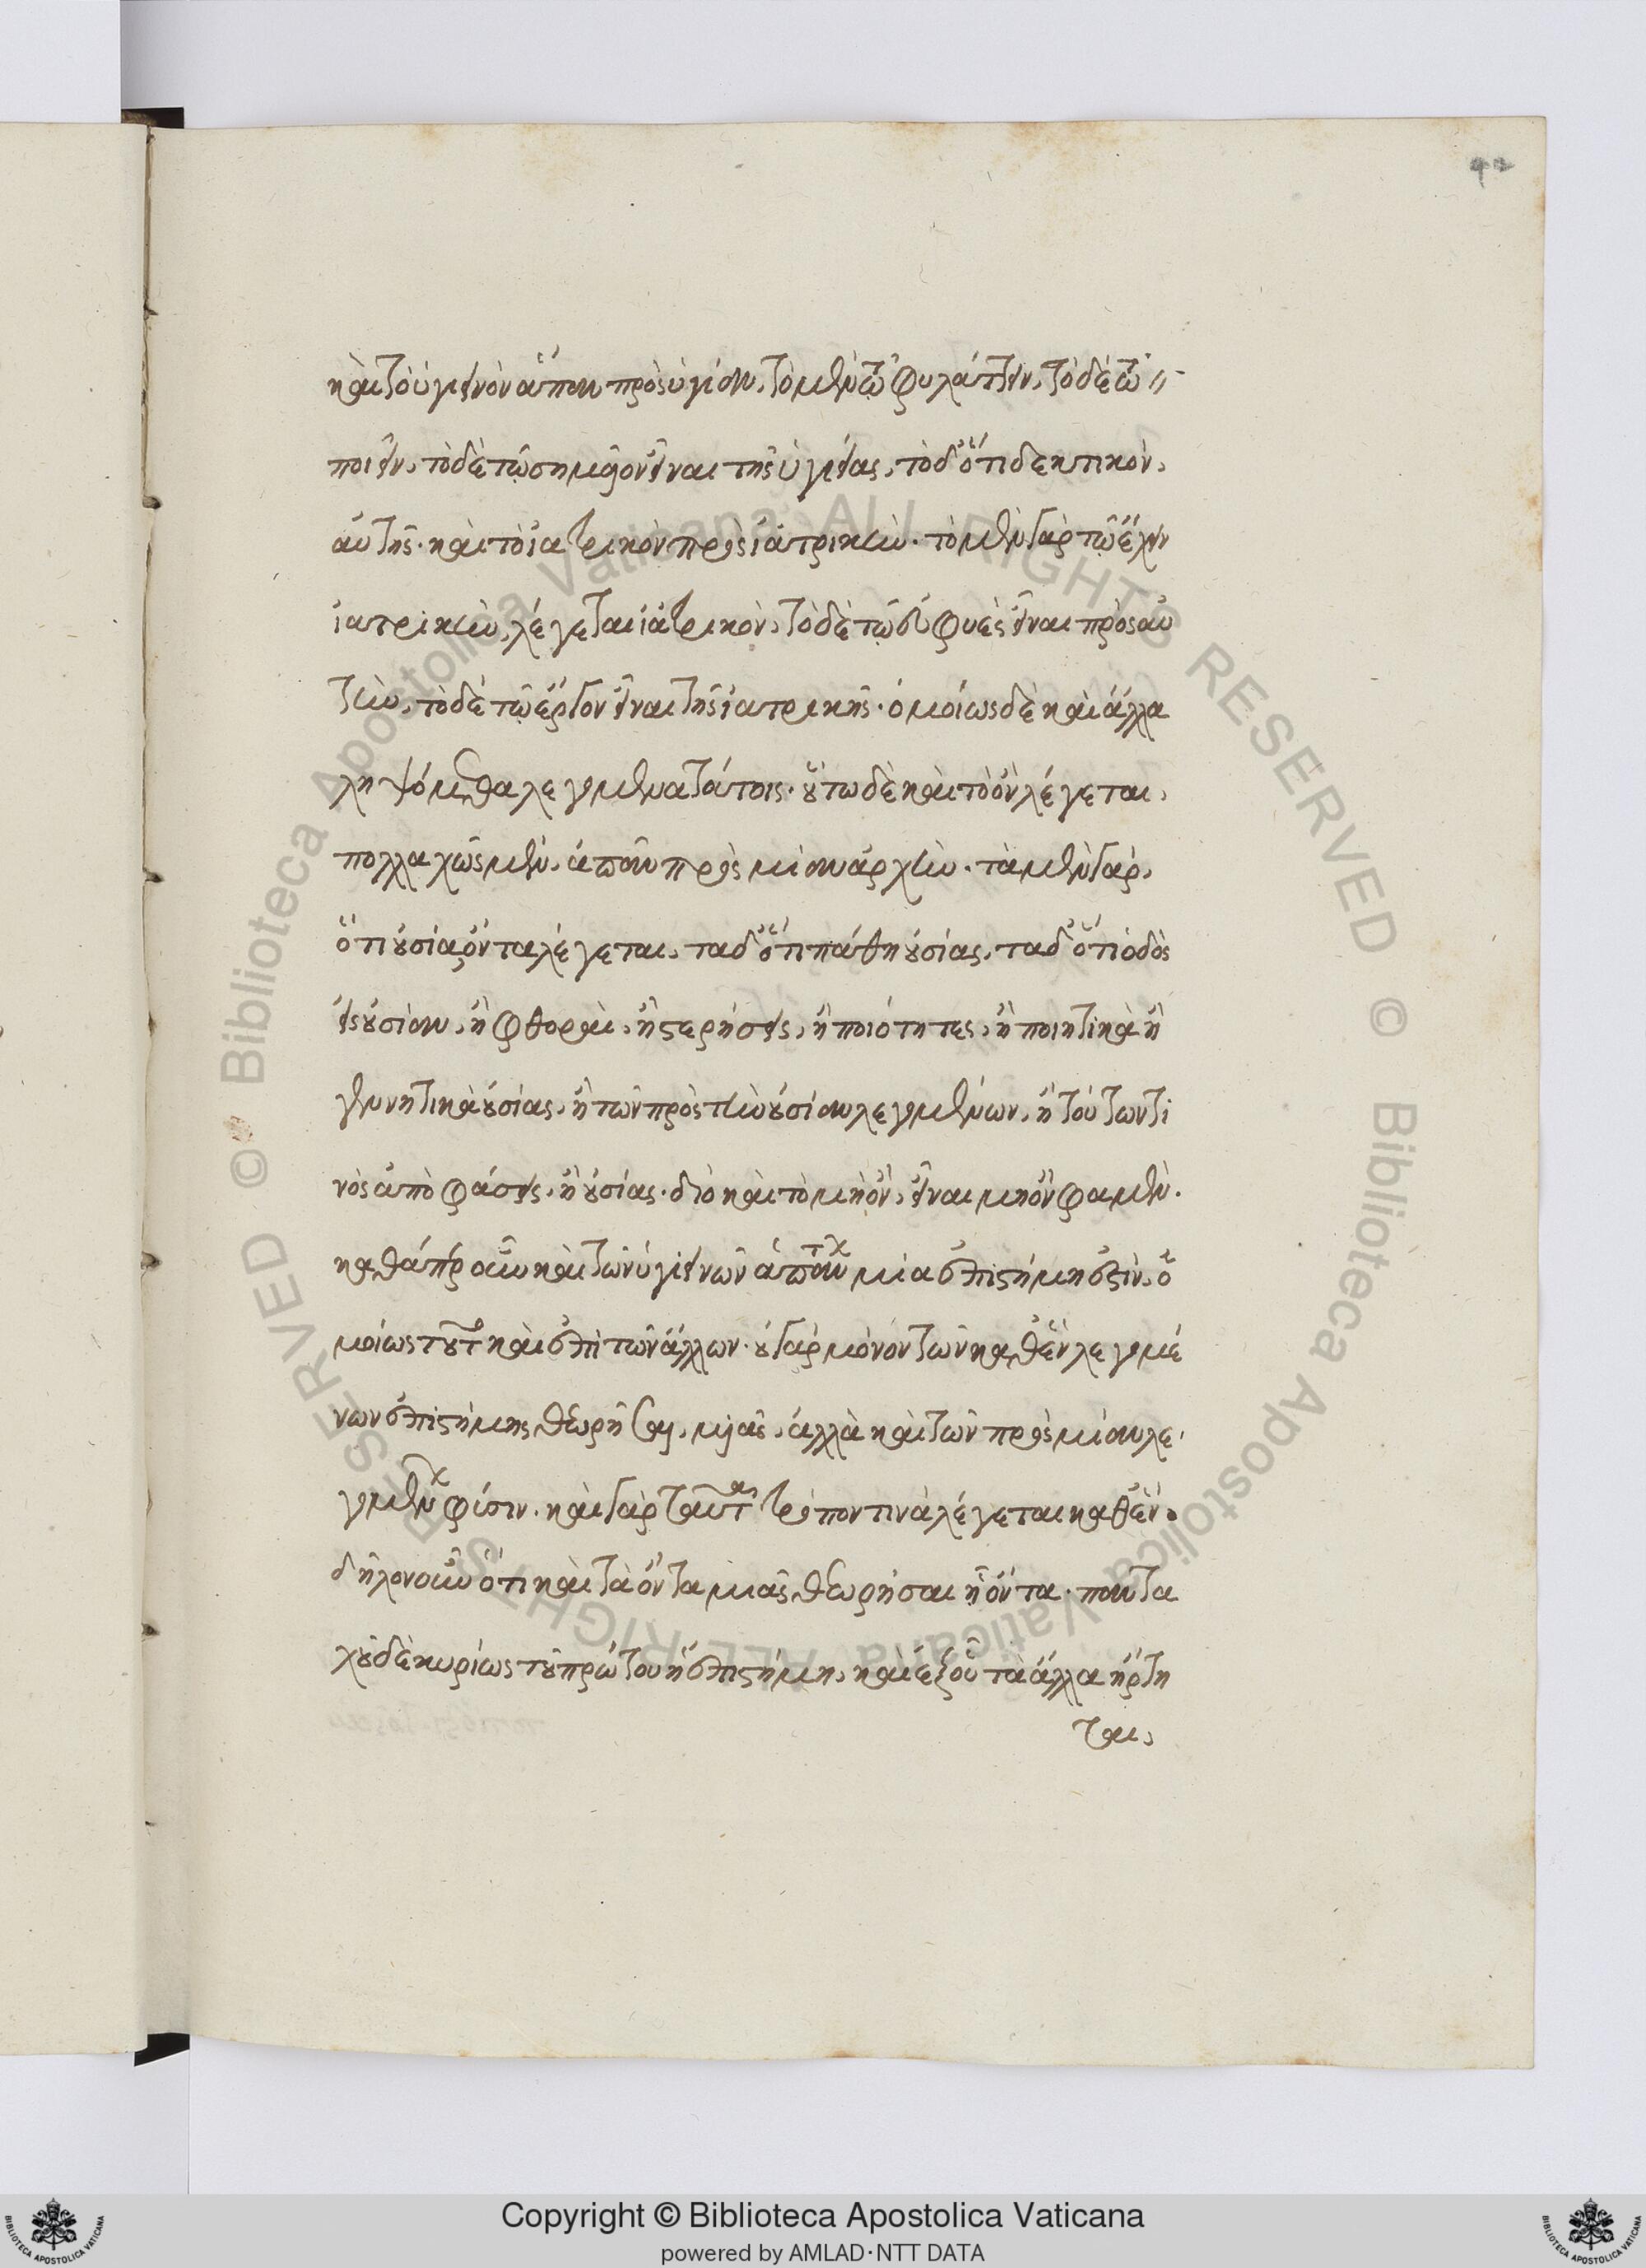 92
καὶ τὸ ὑγιεινὸν ἅπαν πρὸς ὑγίειαν, τὸ μὲν τῷ φυλάττειν, τὸ δὲ τῷ
ποιεῖν, τὸ δὲ τῷ σημεῖον εἶναι τῆς ὑγιείας, τὸ δ' ὅτι δεκτικὸν,
αὐτῆς· καὶ τὸ ἰατρικὸν πρὸς ἰατρικὴν· τὸ μὲν γὰρ τῷ ἔχειν
ἰατρικὴν, λέγεται ἰατρικὸν, τὸ δὲ τῷ εὐφυὲς εἶναι πρὸς αὐ
τὴν, τὸ δὲ τῷ ἔργον εἶναι τῆς ἰατρικῆς· ὁμοίως δὲ καὶ ἄλλα
ληψόμεθα λεγόμενα τούτοις· οὕτω δὲ καὶ τὸ ὂν λέγεται,
πολλαχῶς μὲν, ἅπαν πρὸς μίαν ἀρχὴν· τὰ μὲν γὰρ,
ὅτι οὐσία, ὄντα λέγεται, τὰ δ' ὅτι πάθη οὐσίας, τὰ δ' ὅτι ὁδὸς
εἰς οὐσίαν, ἢ φθοραὶ, ἢ στερήσεις, ἢ ποιότητες, ἢ ποιητικὰ ἢ
γεννητικὰ οὐσίας, ἢ τῶν πρὸς τὴν οὐσίαν λεγομένων, ἢ τούτων τι
νὸς ἀποφάσεις, ἢ οὐσίας· διὸ καὶ τὸ μὴ ὂν, εἶναι μὴ ὂν φαμὲν.
καθάπερ οὖν καὶ τῶν ὑγιεινῶν ἁπάντων μία ἐπιστήμη ἐστὶν, ὁ
μοίως τοῦτο καὶ ἐπὶ τῶν ἄλλων· οὐ γὰρ μόνον τῶν καθ' ἓν λεγομέ
νων ἐπιστήμης θεωρῆσαι, μιᾶς, ἀλλὰ καὶ τῶν πρὸς μίαν λε
γομένων φύσιν· καὶ γὰρ ταῦτα τρόπον τινὰ λέγεται καθ' ἓν.
δῆλον οὖν ὅτι καὶ τὰ ὄντα μιᾶς θεωρῆσαι ᾗ ὄντα· παντα
χοῦ δὲ κυρίως τοῦ πρώτου ἡ ἐπιστήμη, καὶ ἐξ οὗ τὰ ἄλλα ἤρτη
ται,
© Biblioteca Apostolica Vaticana ALL RIGHTS RESERVED
© Biblioteca Apostolica Vaticana ALL RIGHTS RESERVED
Copyright © Biblioteca Apostolica Vaticana
powered by AMLAD·NTT DATA
BIBLIOTECA APOSTOLICA VATICANA
BIBLIOTECA APOSTOLICA VATICANA